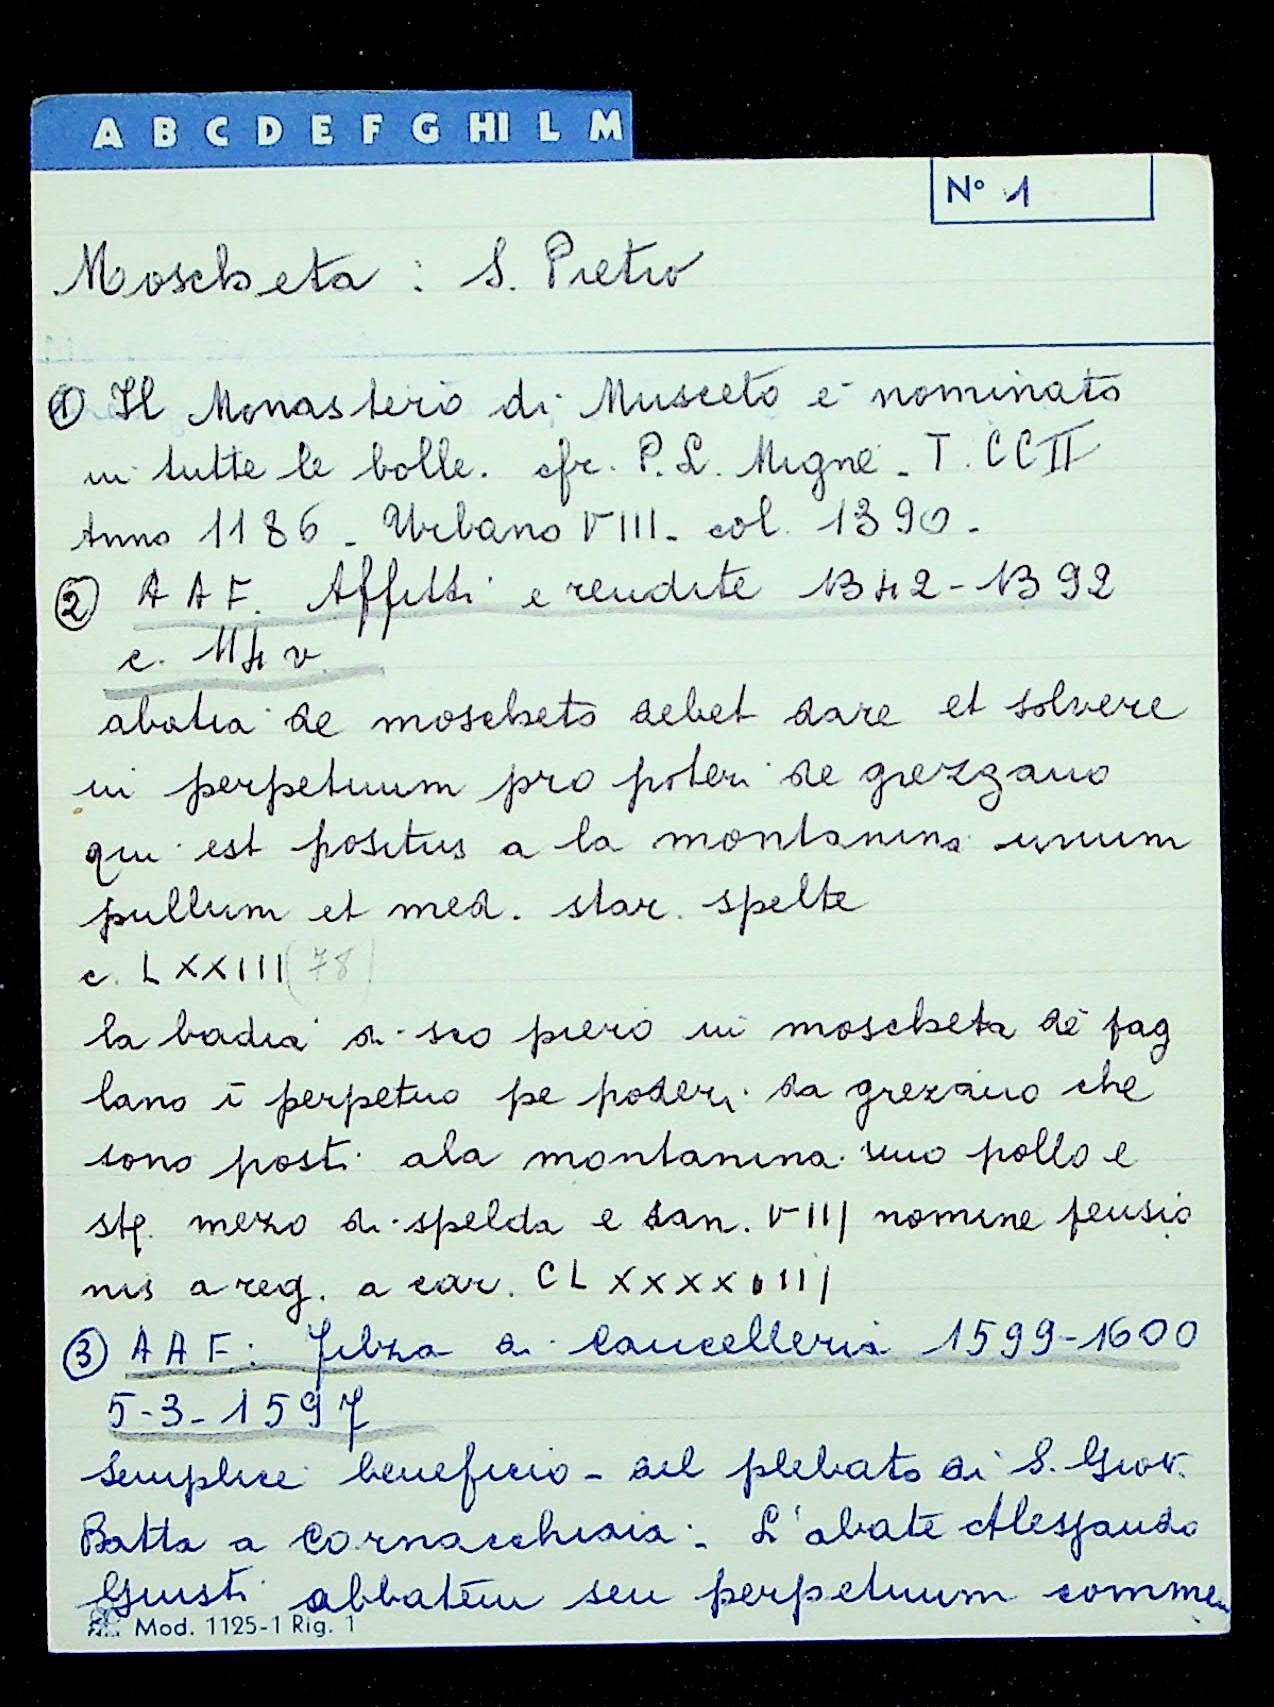 A B C D E F G HI L M
N° 1
Moscheta : S. Pietro
① Il Monastero di Musceto è nominato
in tutte le bolle. cfr. P.L. Migne - T. CCII
Anno 1186 - Urbano VIII - col. 1390 -
② A A F. Affitti e rendite 1342-1392
c. 114 v.
abatia de moscheto debet dare et solvere
in perpetuum pro poteri de grezzano
qui est positus a la montanina unum
pullum et med. star. spelte
c. LXXIII (78)
la badia di sco piero in moscheta dē fag
lano ī perpetuo pe poderi da grezano che
sono posti ala montanina uno pollo e
mezo di spelda e dan. VIII nomine pensio
nis a reg. a car. CLXXXXIIII
③ A A F: Filza di Cancelleria 1599-1600
5-3-1597
Semplice beneficio - del plebato di S. Giov.
Batta a Cornacchiaia: L'abate Alessandro
Giusti abbatem seu perpetuum commen
Mod. 1125-1 Rig. 1